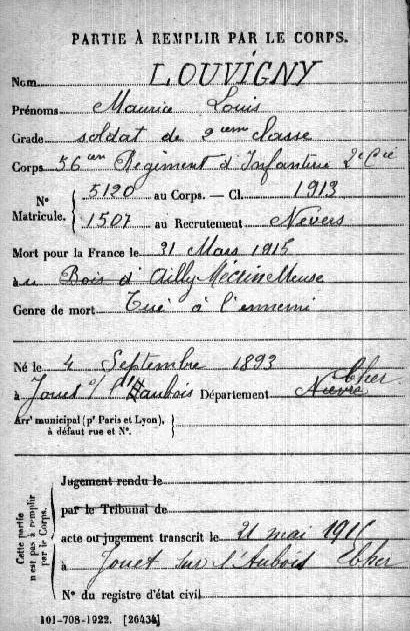 PARTIE À REMPLIR PAR LE CORPS.
Nom LOUVIGNY
Prénoms Maurice Louis
Grade soldat de 2eme classe
Corps 56em Régiment d'Infanterie 2e Cie
N° Matricule. { 5120 au Corps. — Cl. 1913
1507 au Recrutement Nevers
Mort pour la France le 31 Mars 1915
à au Bois d'Ailly Meuse
Genre de mort Tué à l'ennemi
Né le 4 Septembre 1893
Cher
à Joues s/ l'Haubois Département Nievre
Arrt municipal (pr Paris et Lyon), à défaut rue et N°. }
Cette partie n'est pas à remplir par le Corps.
Jugement rendu le
par le Tribunal de
acte ou jugement transcrit le 21 mai 1916
à Jouet sur l'Aubois Cher
N° du registre d'état civil
101-708-1922. [26434]